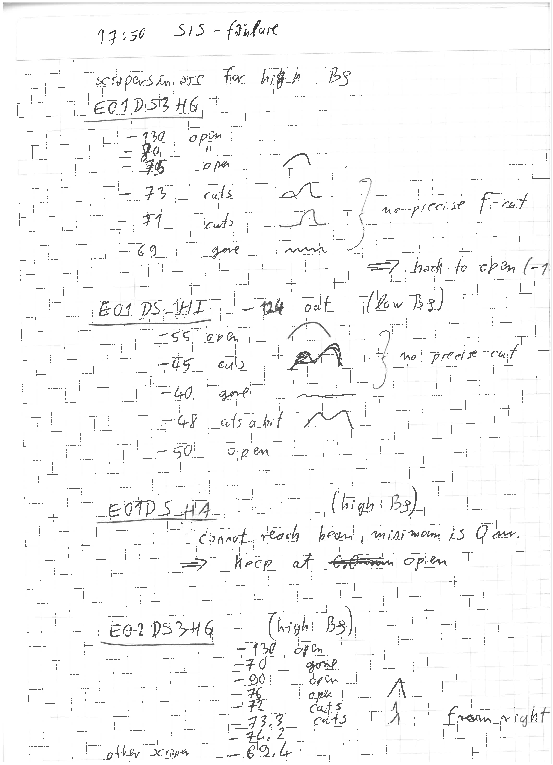 17:50 SIS-failure
scrapers in use for high Bρ
E01DS3HG
-130 open
-70 "
-75 open
-73 cuts
71 cuts no precise f-cut
-69 gone
⇒ back to open (-1
E01 DS_HI -124 out (low Bρ)
-55 open
-45 cuts no precise cut
-40 gone
-48 cuts a bit
-50 open
E01DS_HA (high Bρ)
cannot reach beam, minimum is 0 mm.
⇒ keep at open
E02DS3HG (high Bρ)
-130 open
-70 gone
-90 open
-76 open
-72 cuts
-73.3 cuts from right
-74.2
other scraper -69.4